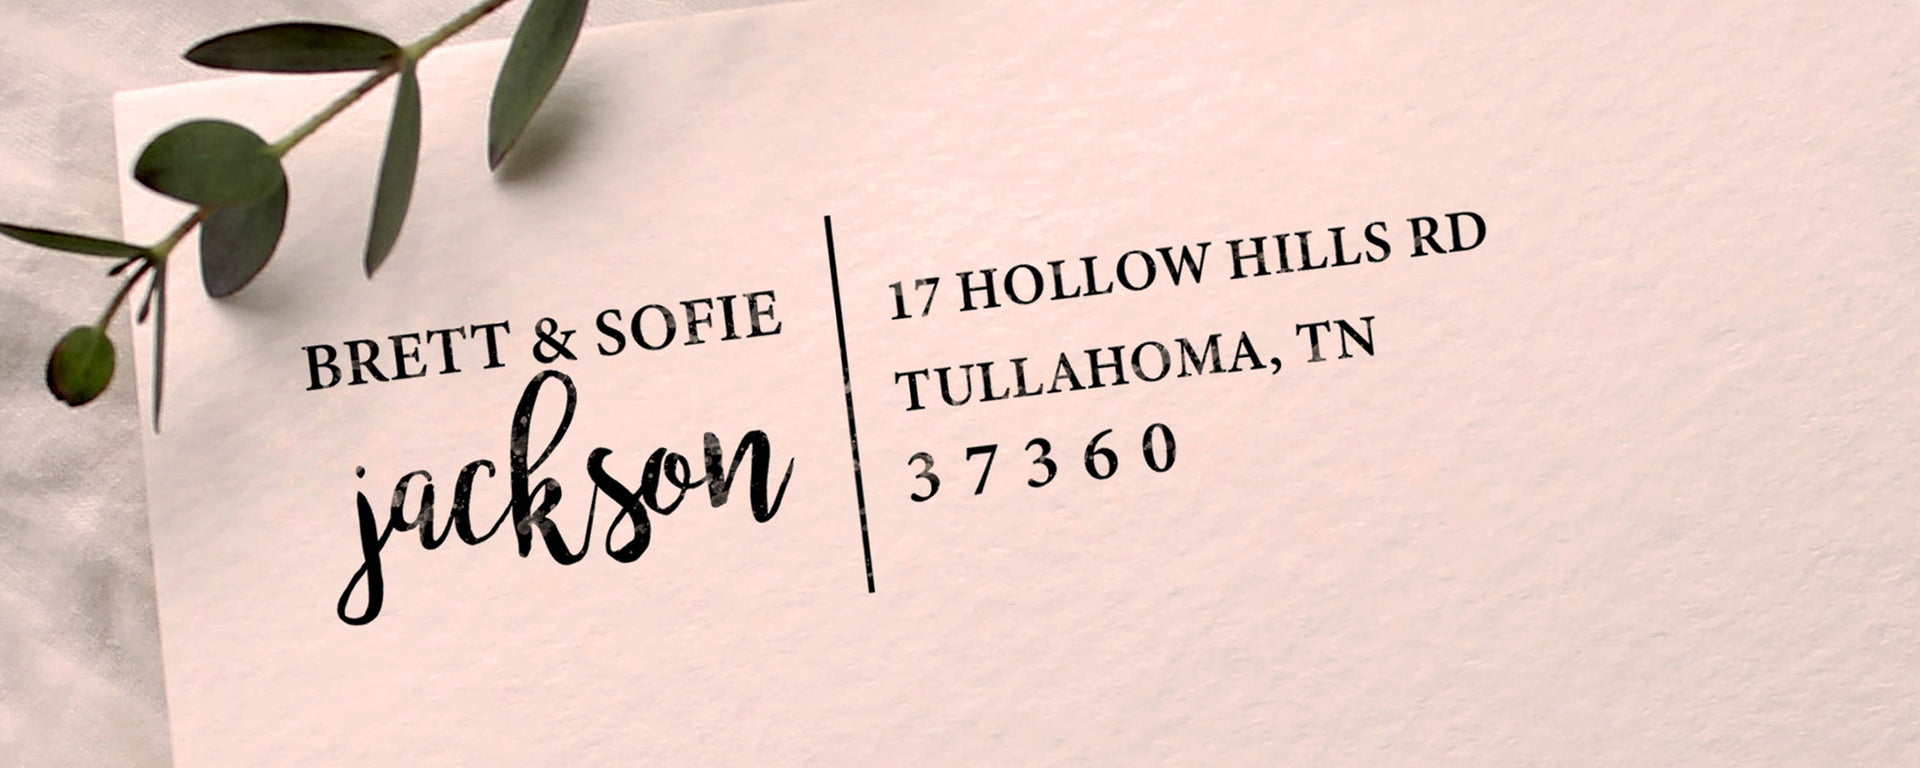 BRETT & SOFIE
jackson
17 HOLLOW HILLS RD
TULLAHOMA, TN
37360